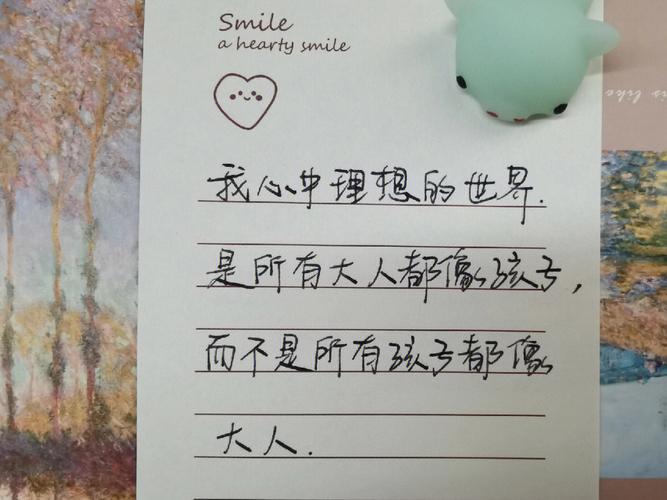 Smile
a hearty smile
我心中理想的世界.
是所有大人都像孩子,
而不是所有孩子都像
大人.